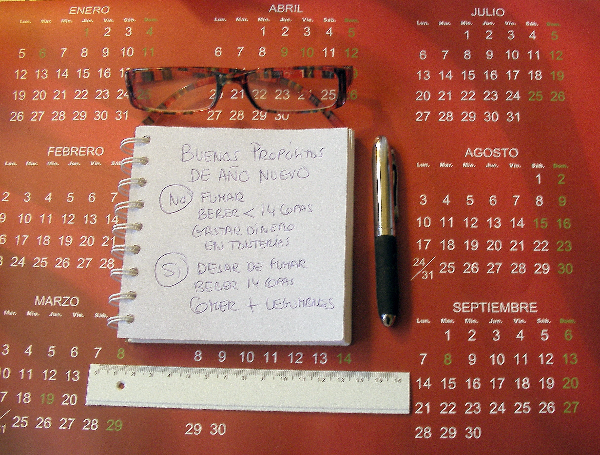 ENERO
1 2 3 4
5 6 7 8 9 10 11
12 13 14 15 16 17 18
19 20 21 22 23 24 25
26 27 28 29 30 31
FEBRERO
MARZO
3 4 5 6 7 8
ABRIL
1 2 3 4 5
6 7 8 9 10 11 12
29 30
BUENOS PROPÓSITOS
DE AÑO NUEVO
NO FUMAR
BEBER < 14 COPAS
GASTAR DINERO
EN TONTERIAS
SI DEJAR DE FUMAR
BEBER 14 COPAS
COMER + LEGUMBRES
8 9 10 11 12 13 14
29 30
JULIO
Lun. Mar. Mié. Jue. Vie. Sáb. Dom.
1 2 3 4 5
6 7 8 9 10 11 12
13 14 15 16 17 18 19
20 21 22 23 24 25 26
27 28 29 30 31
AGOSTO
Lun. Mar. Mié. Jue. Vie. Sáb. Dom.
1 2
3 4 5 6 7 8 9
10 11 12 13 14 15 16
17 18 19 20 21 22 23
24/31 25 26 27 28 29 30
SEPTIEMBRE
Lun. Mar. Mié. Jue. Vie. Sáb. Dom.
1 2 3 4 5 6
7 8 9 10 11 12 13
14 15 16 17 18 19 20
21 22 23 24 25 26 27
28 29 30